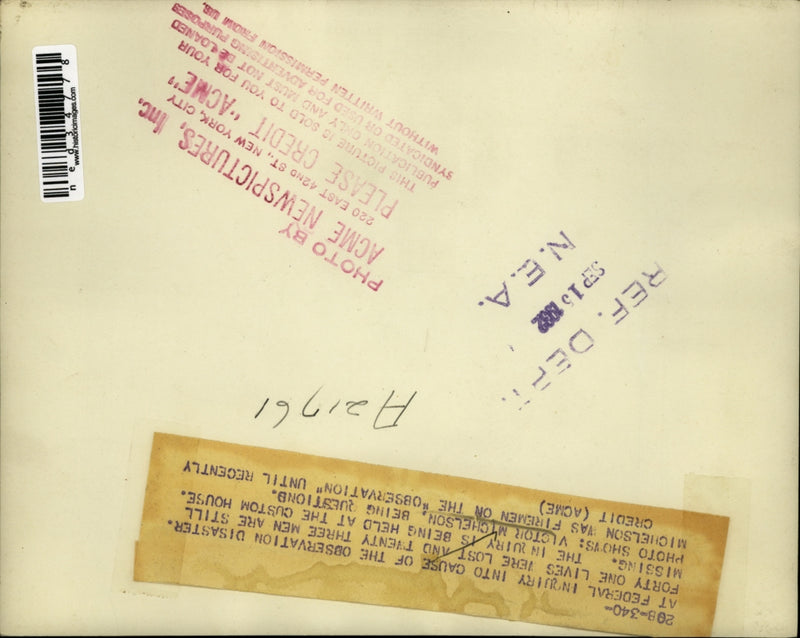 ned34778
www.historicimages.com
PHOTO BY
ACME NEWSPICTURES, Inc.
220 EAST 42ND ST., NEW YORK, CITY
PLEASE CREDIT "ACME"
THIS PICTURE IS SOLD TO YOU FOR YOUR
PUBLICATION ONLY AND MUST NOT BE LOANED
SYNDICATED OR USED FOR ADVERTISING PURPOSES
WITHOUT WRITTEN PERMISSION FROM US.
REF. DEPT.
SEP 15 1932
N.E.A.
A21761
208-340-
AT FEDERAL INQUIRY INTO CAUSE OF THE OBSERVATION DISASTER.
FORTY ONE LIVES WERE LOST AND TWENTY THREE MEN ARE STILL
MISSING. THE INQUIRY IS BEING HELD AT THE CUSTOM HOUSE.
PHOTO SHOWS: VICTOR MICHELSON. BEING QUESTIOND.
MICHELSON WAS FIREMEN ON THE "OBSERVATION" UNTIL RECENTLY
CREDIT (ACME)